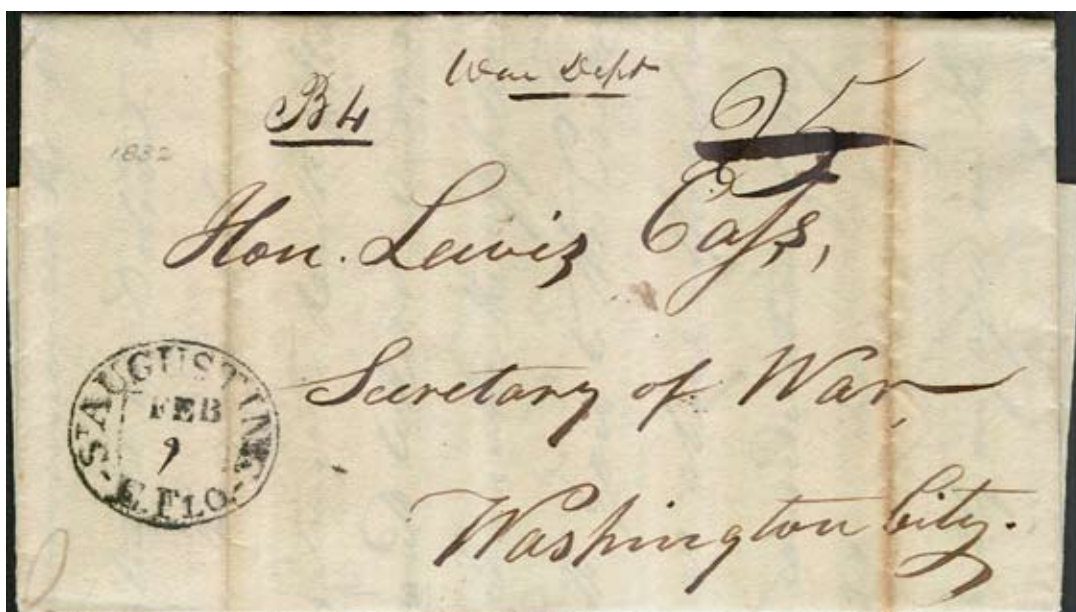 War Dept
B4
25
1832
Hon. Lewis Cass,
Secretary of War,
Washington City.
ST AUGUSTINE
FEB
9
E. FLO.